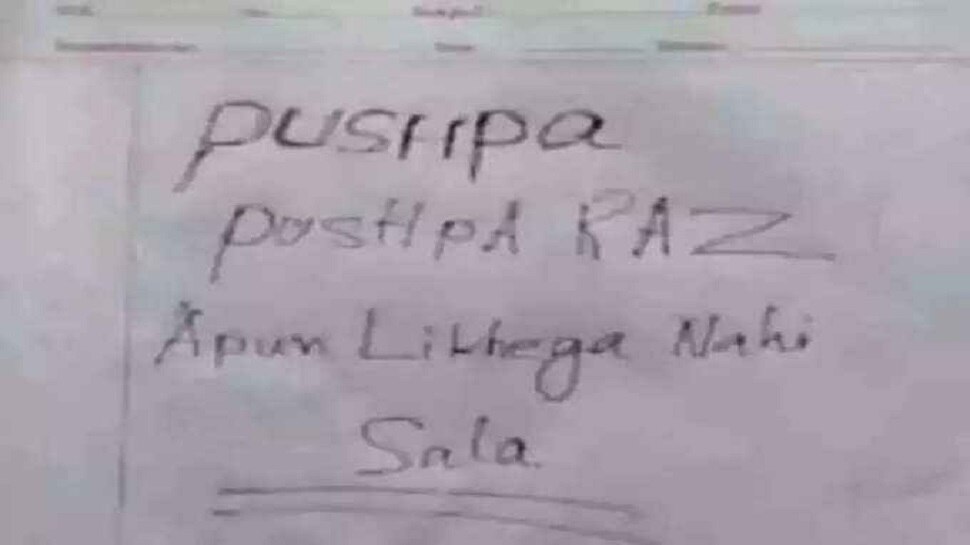 PUSHPA
PUSHPA RAZ
Apun Likhega Nahi
Sala